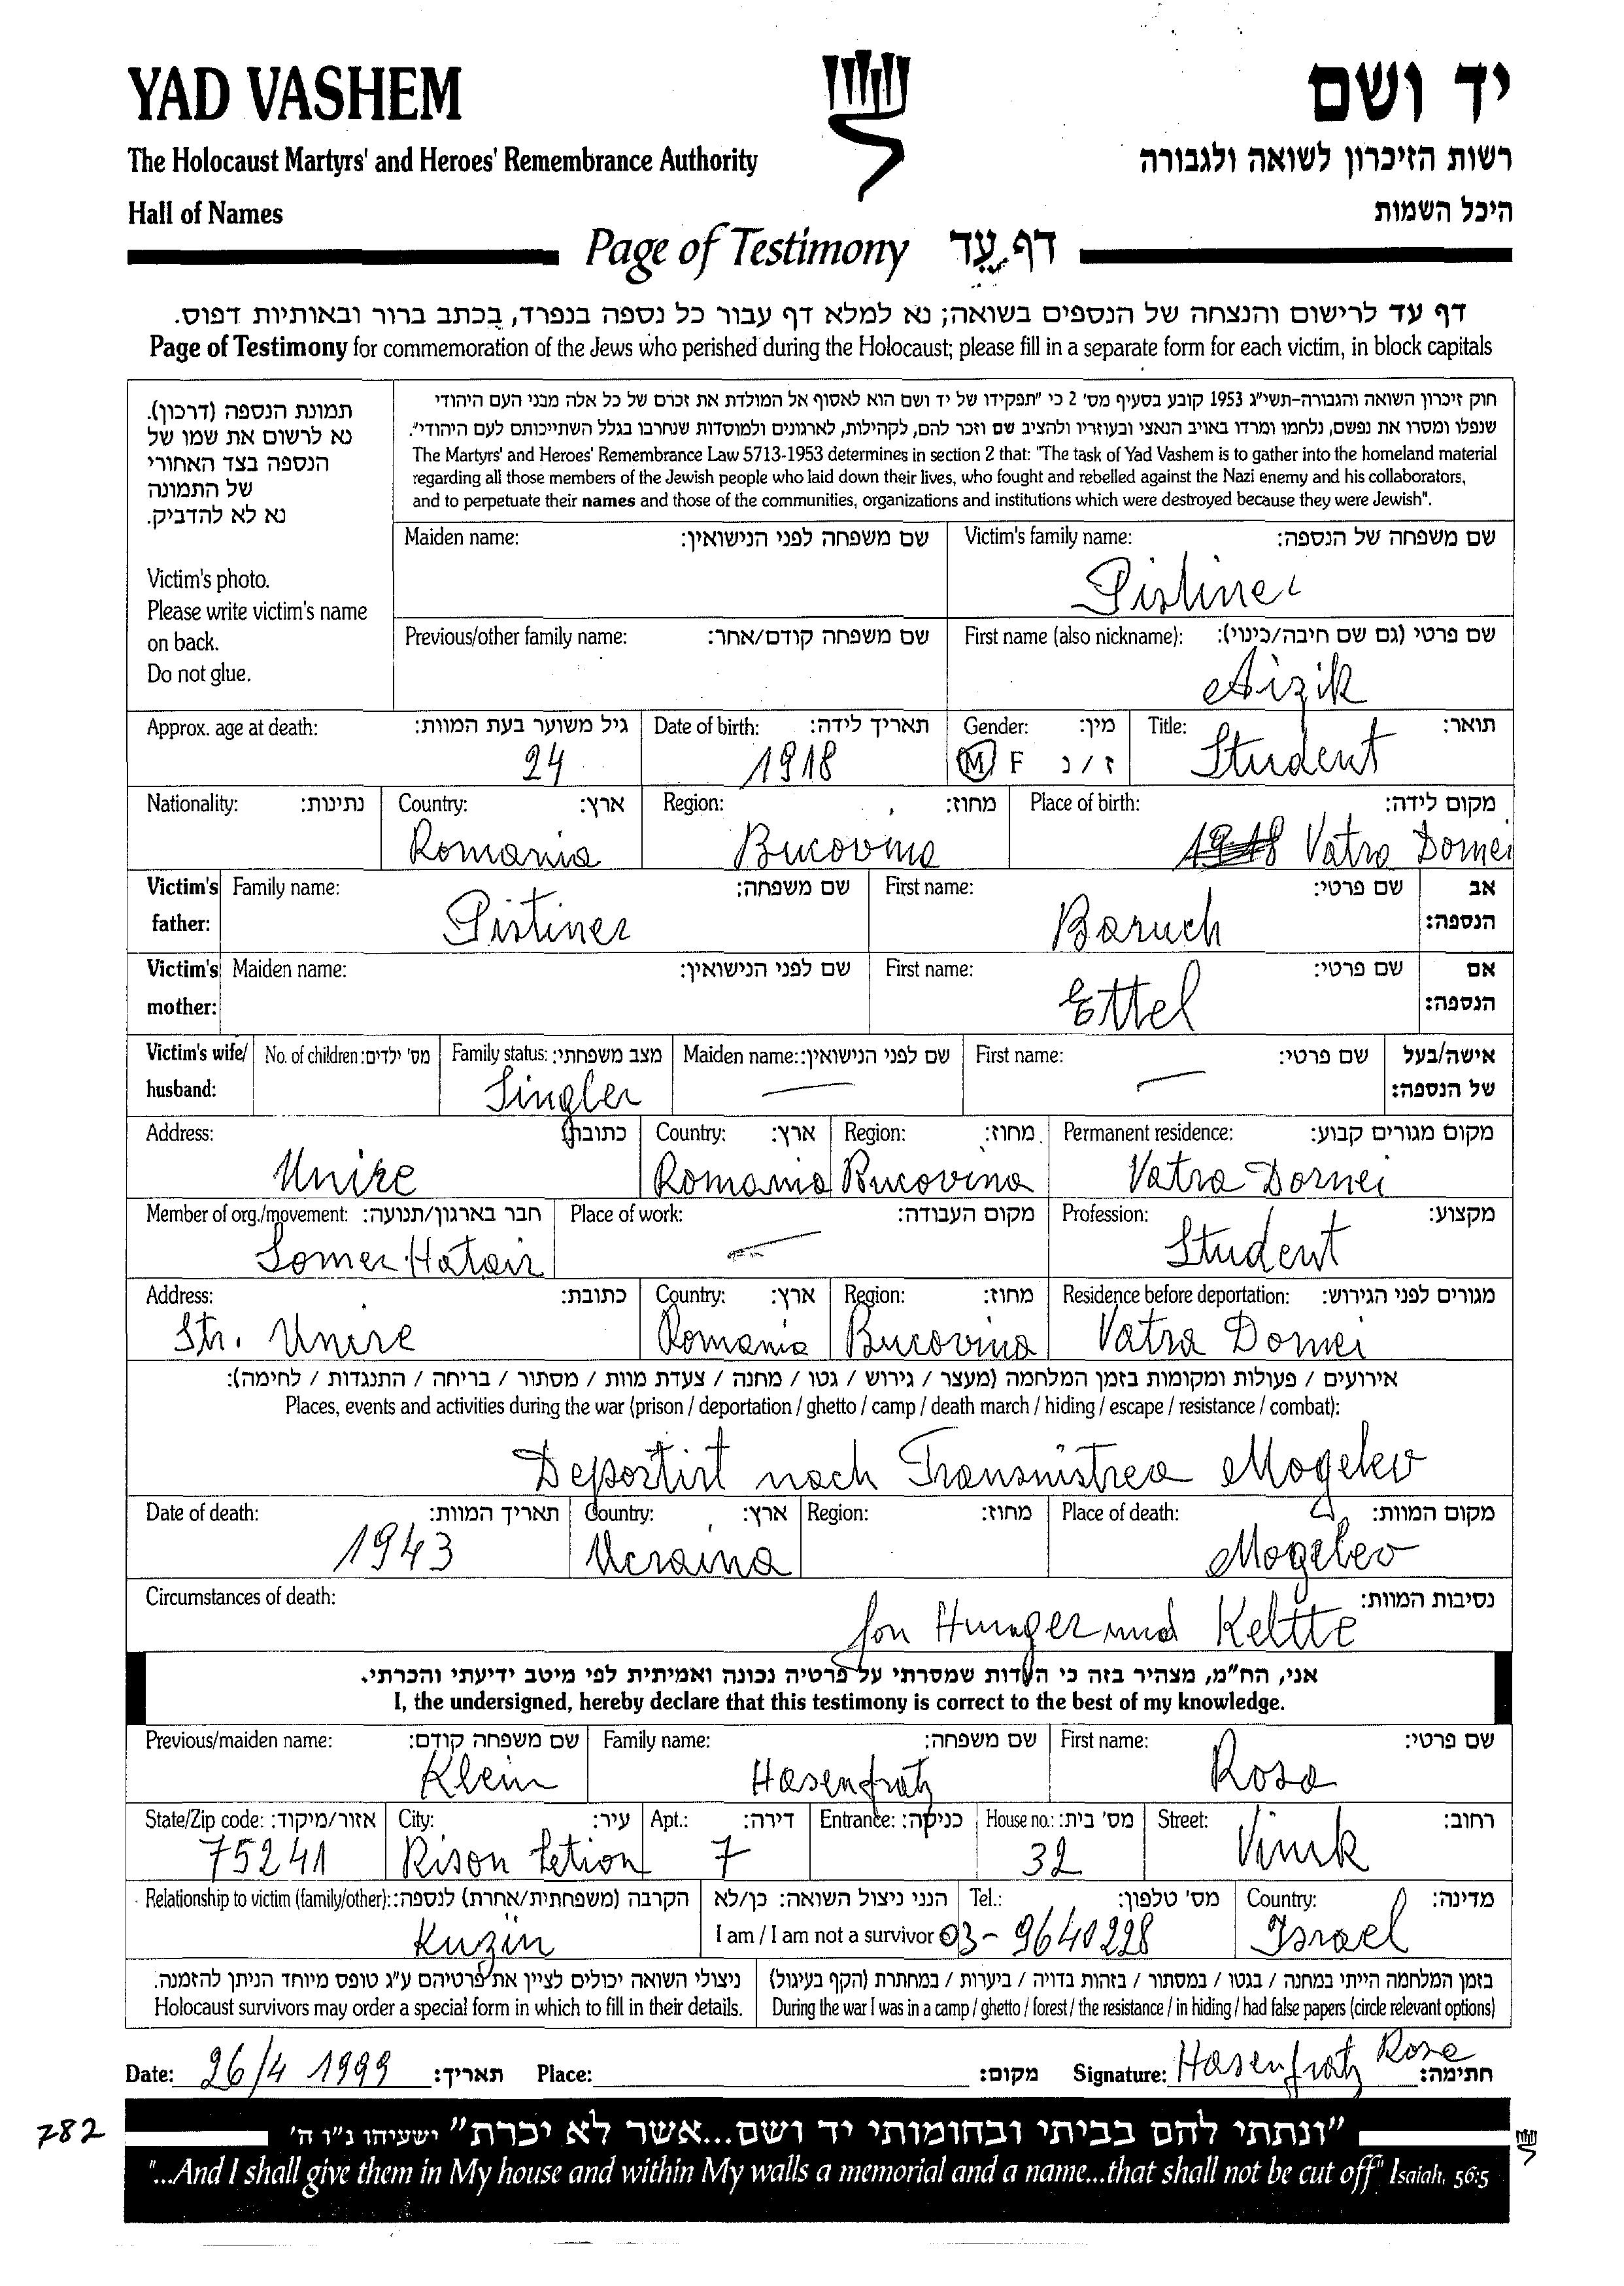 YAD VASHEM
יד ושם
The Holocaust Martyrs' and Heroes' Remembrance Authority
רשות הזיכרון לשואה ולגבורה
Hall of Names
היכל השמות
Page of Testimony דף עד
דף עד לרישום והנצחה של הנספים בשואה; נא למלא דף עבור כל נספה בנפרד, בכתב ברור ובאותיות דפוס.
Page of Testimony for commemoration of the Jews who perished during the Holocaust; please fill in a separate form for each victim, in block capitals
תמונת הנספה (דרכון).
נא לרשום את שמו של
הנספה בצד האחורי
של התמונה
נא לא להדביק.
Victim's photo.
Please write victim's name
on back.
Do not glue.
חוק זיכרון השואה והגבורה-תשי"ג 1953 קובע בסעיף מס' 2 כי "תפקידו של יד ושם הוא לאסוף אל המולדת את זכרם של כל אלה מבני העם היהודי
שנפלו ומסרו את נפשם, נלחמו ומרדו באויב הנאצי ובעוזריו ולהציב שם וזכר להם, לקהילות, לארגונים ולמוסדות שנחרבו בגלל השתייכותם לעם היהודי".
The Martyrs' and Heroes' Remembrance Law 5713-1953 determines in section 2 that: "The task of Yad Vashem is to gather into the homeland material
regarding all those members of the Jewish people who laid down their lives, who fought and rebelled against the Nazi enemy and his collaborators,
and to perpetuate their names and those of the communities, organizations and institutions which were destroyed because they were Jewish".
Maiden name: שם משפחה לפני הנישואין:
Victim's family name: שם משפחה של הנספה:
Pistiner
Previous/other family name: שם משפחה קודם/אחר:
First name (also nickname): שם פרטי (גם שם חיבה/כינוי):
Aizik
Approx. age at death: גיל משוער בעת המוות:
24
Date of birth: תאריך לידה:
1918
Gender: מין:
M F ז / נ
Title: תואר:
Student
Nationality: נתינות:
Country: ארץ:
Romania
Region: מחוז:
Bucovina
Place of birth: מקום לידה:
Vatra Dornei
Victim's father: Family name: שם משפחה:
Pistiner
First name: שם פרטי:
Baruch
אב הנספה:
Victim's mother: Maiden name: שם לפני הנישואין:
First name: שם פרטי:
Ettel
אם הנספה:
Victim's wife/ husband:
No. of children: מס' ילדים:
Family status: מצב משפחתי:
Singler
Maiden name: שם לפני הנישואין:
—
First name: שם פרטי:
—
אישה/בעל של הנספה:
Address: כתובת:
Unire
Country: ארץ:
Romania
Region: מחוז:
Bucovina
Permanent residence: מקום מגורים קבוע:
Vatra Dornei
Member of org./movement: חבר בארגון/תנועה:
Somer Hatair
Place of work: מקום העבודה:
—
Profession: מקצוע:
Student
Address: כתובת:
Str. Unire
Country: ארץ:
Romania
Region: מחוז:
Bucovina
Residence before deportation: מגורים לפני הגירוש:
Vatra Dornei
אירועים / פעולות ומקומות בזמן המלחמה (מעצר / גירוש / גטו / מחנה / צעדת מוות / מסתור / בריחה / התנגדות / לחימה):
Places, events and activities during the war (prison / deportation / ghetto / camp / death march / hiding / escape / resistance / combat):
Deportirt nach Transnistrea Mogelev
Date of death: תאריך המוות:
1943
Country: ארץ:
Ucraina
Region: מחוז:
Place of death: מקום המוות:
Mogelev
Circumstances of death: נסיבות המוות:
fon Hunger und Keltte
אני, הח"מ, מצהיר בזה כי העדות שמסרתי על פרטיה נכונה ואמיתית לפי מיטב ידיעתי והכרתי.
I, the undersigned, hereby declare that this testimony is correct to the best of my knowledge.
Previous/maiden name: שם משפחה קודם:
Klein
Family name: שם משפחה:
Hasenfratz
First name: שם פרטי:
Rosa
State/Zip code: אזור/מיקוד:
75241
City: עיר:
Rison Letion
Apt.: דירה:
7
Entrance: כניסה:
House no.: מס' בית:
32
Street: רחוב:
Vinik
Relationship to victim (family/other): הקרבה (משפחתית/אחרת) לנספה:
Kuzin
הנני ניצול השואה: כן/לא
I am / I am not a survivor
Tel.: מס' טלפון:
03-9640228
Country: מדינה:
Israel
ניצולי השואה יכולים לציין את פרטיהם ע"ג טופס מיוחד הניתן להזמנה.
Holocaust survivors may order a special form in which to fill in their details.
בזמן המלחמה הייתי במחנה / בגטו / במסתור / בזהות בדויה / ביערות / במחתרת (הקף בעיגול)
During the war I was in a camp / ghetto / forest / the resistance / in hiding / had false papers (circle relevant options)
Date: 26/4 1999 תאריך: Place: מקום: Signature: Hasenfratz Rosa חתימה:
782
"ונתתי להם בביתי ובחומותי יד ושם...אשר לא יכרת" ישעיהו נ"ו ה'
"...And I shall give them in My house and within My walls a memorial and a name...that shall not be cut off" Isaiah, 56:5